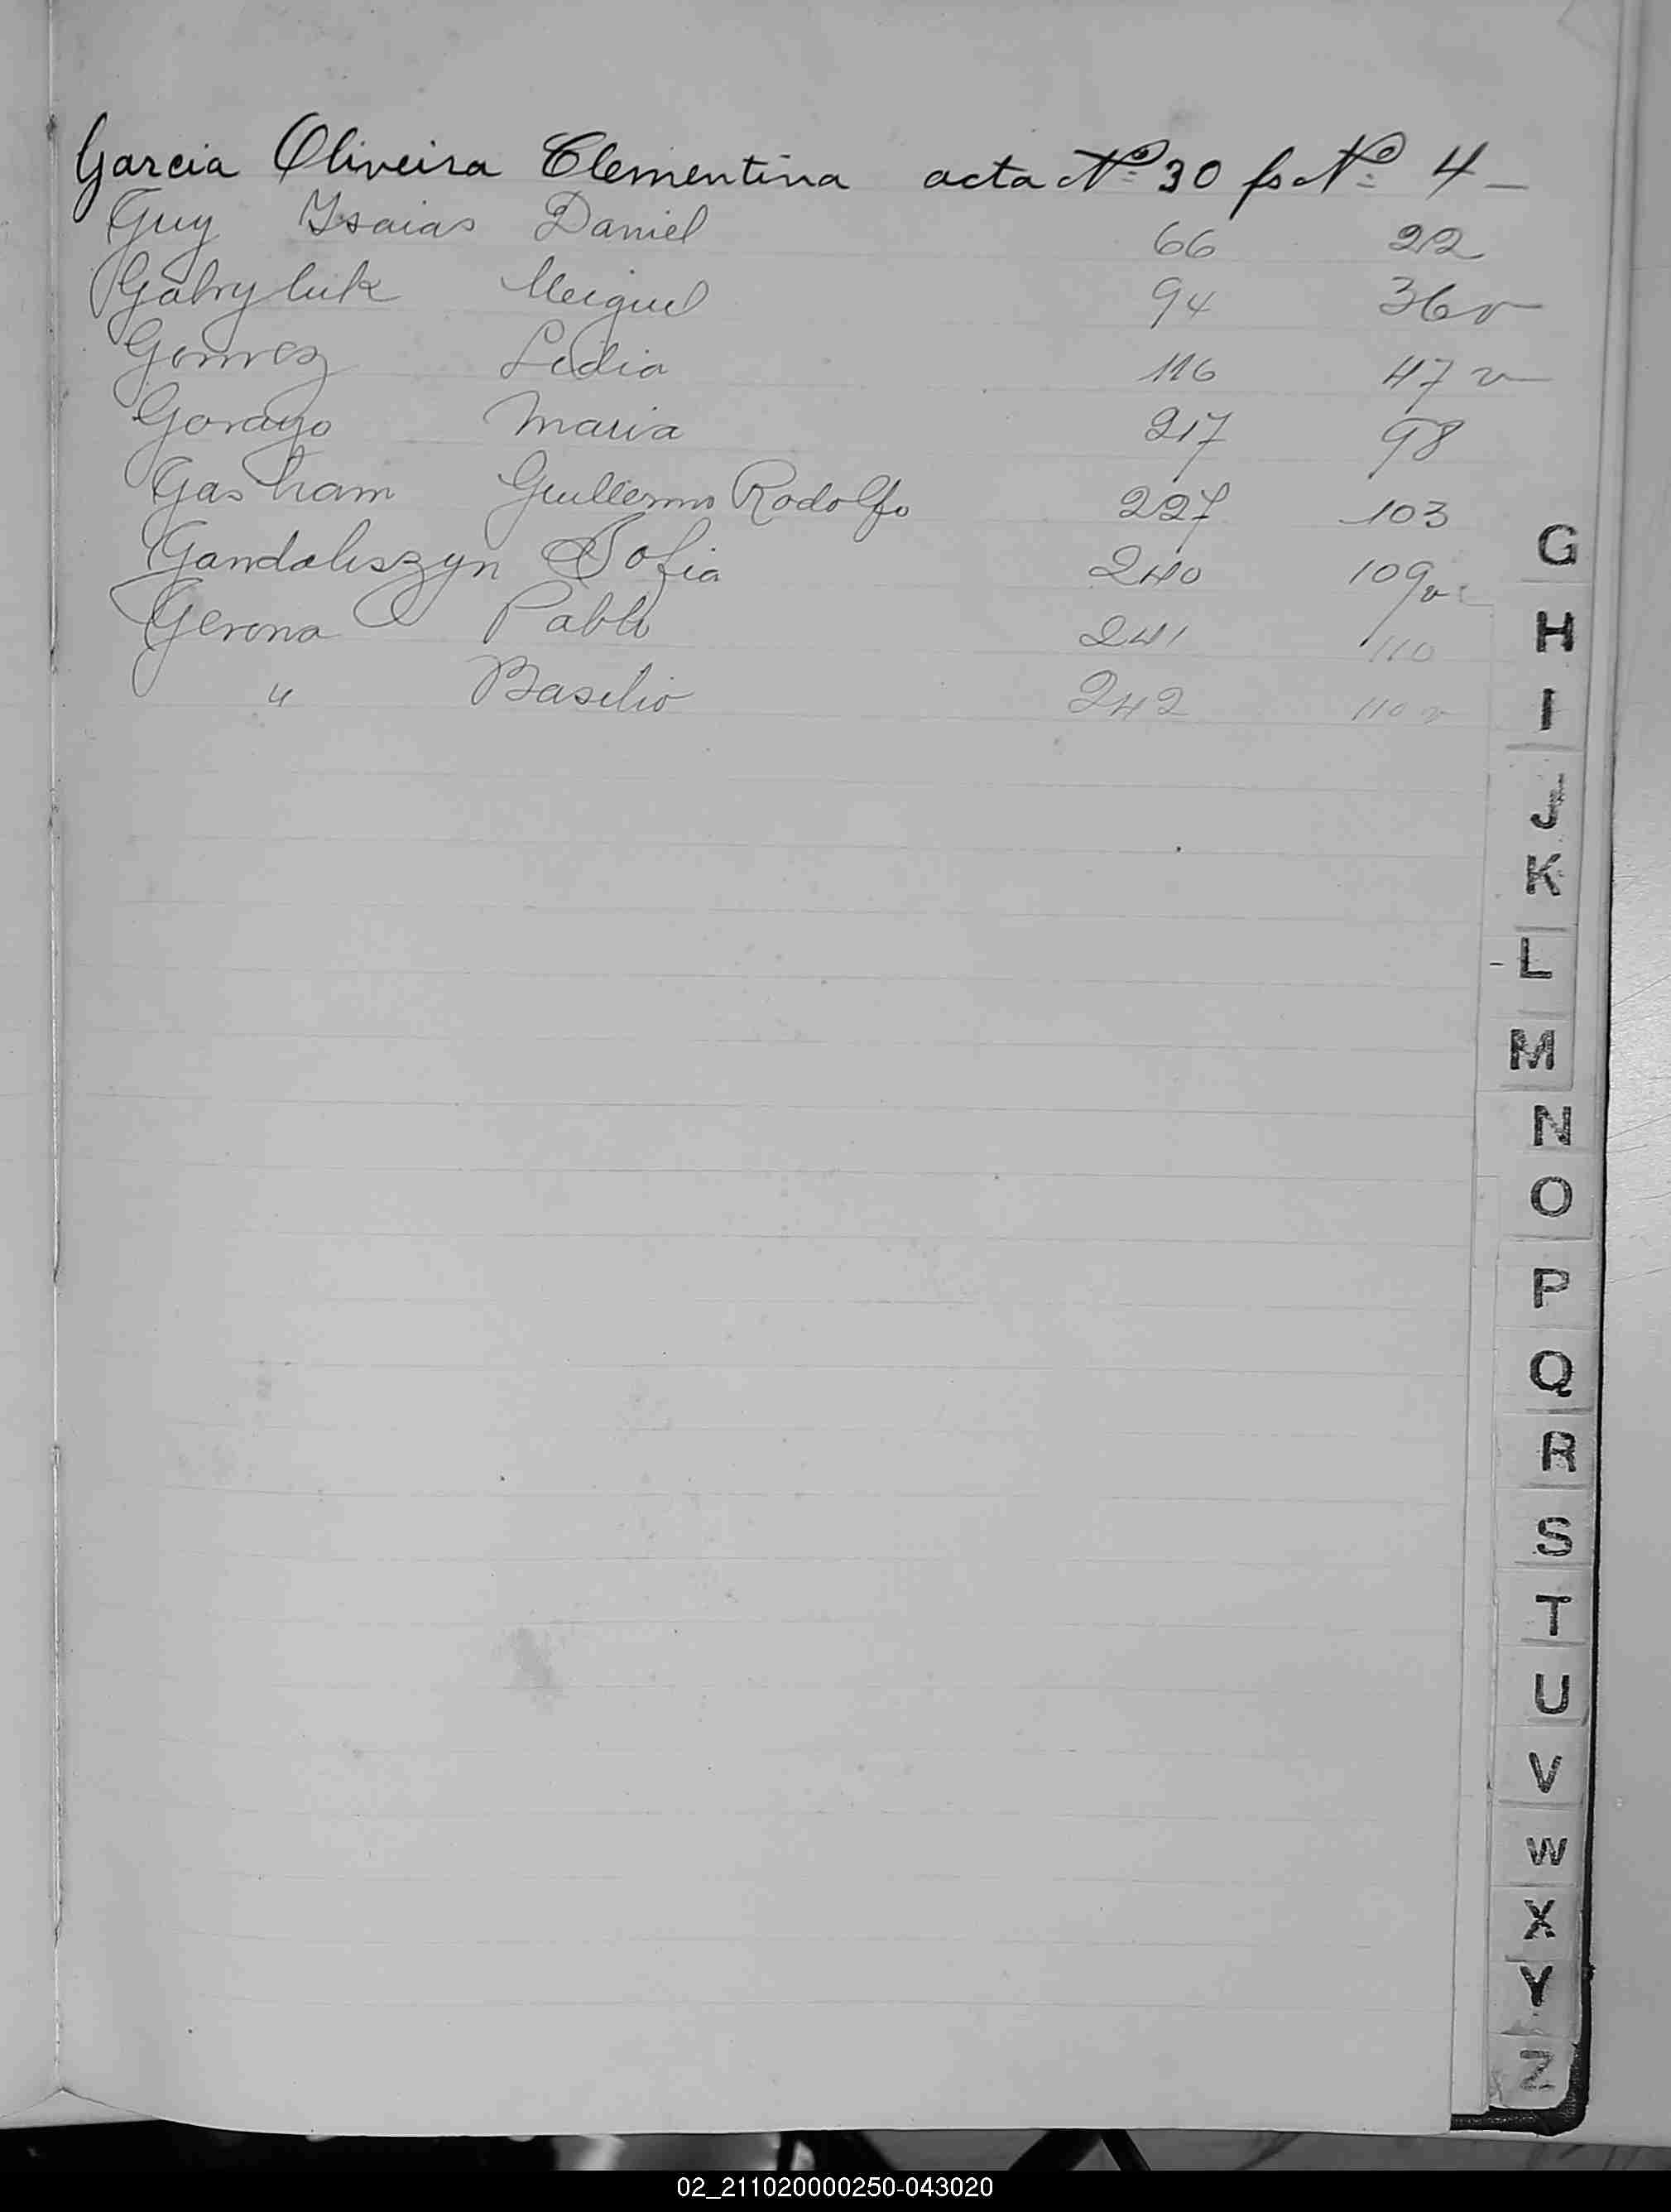 Garcia Oliveira Clementina acta Nº 30 fs Nº 4 -
Guy Isaias Daniel 66 22
Gabryluk Meiguel 94 36v
Gomez Lidia 116 47 v
Gorayo Maria 217 98
Gasham Guillermo Rodolfo 227 103
Gandaliszyn Sofia 240 109v
Gerona Pablo 241 110
" Basilio 242 110 v
G
H
I
J
K
L
M
N
O
P
Q
R
S
T
U
V
W
X
Y
Z
02_211020000250-043020